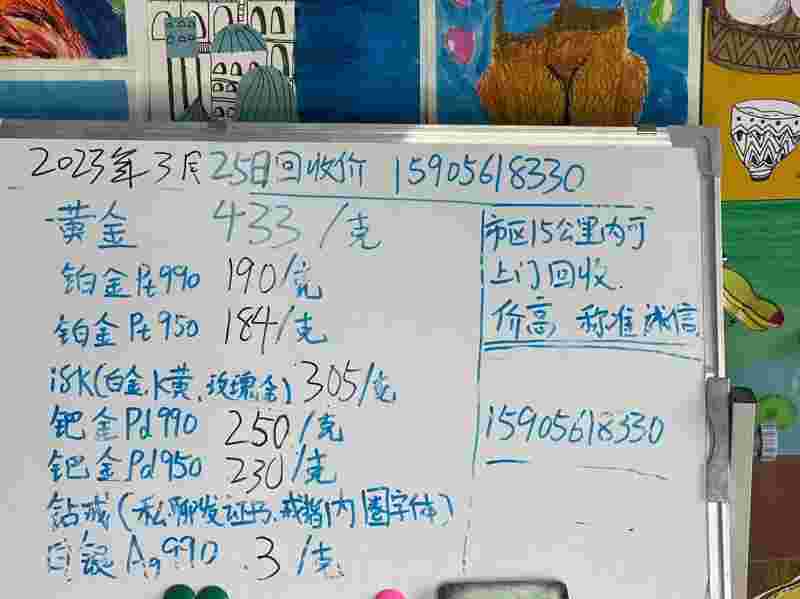 2023年3月25日回收价 15905618330
黄金 433/克
铂金Pt990 190/克
铂金Pt950 184/克
18K(白金.K黄.玫瑰金) 305/克
钯金Pd990 250/克
钯金Pd950 230/克
钻戒(私聊发证书.戒指内圈字体)
白银Ag990 .3/克
市区15公里内可
上门回收.
价高 称准诚信
15905618330